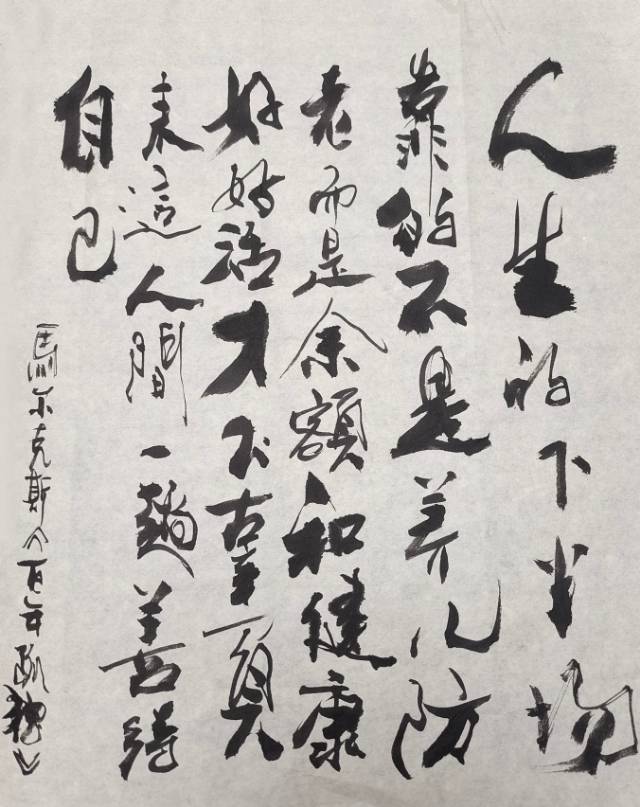 人生的下半场
靠的不是养儿防
老而是余额和健康
好好活才不辜負
来這人間一趟善待
自己
馬尔克斯《百年孤独》